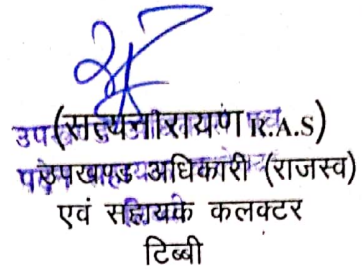 (सत्यनारायण R.A.S)
उपखण्ड अधिकारी (राजस्व)
एवं सहायक कलक्टर
टिब्बी